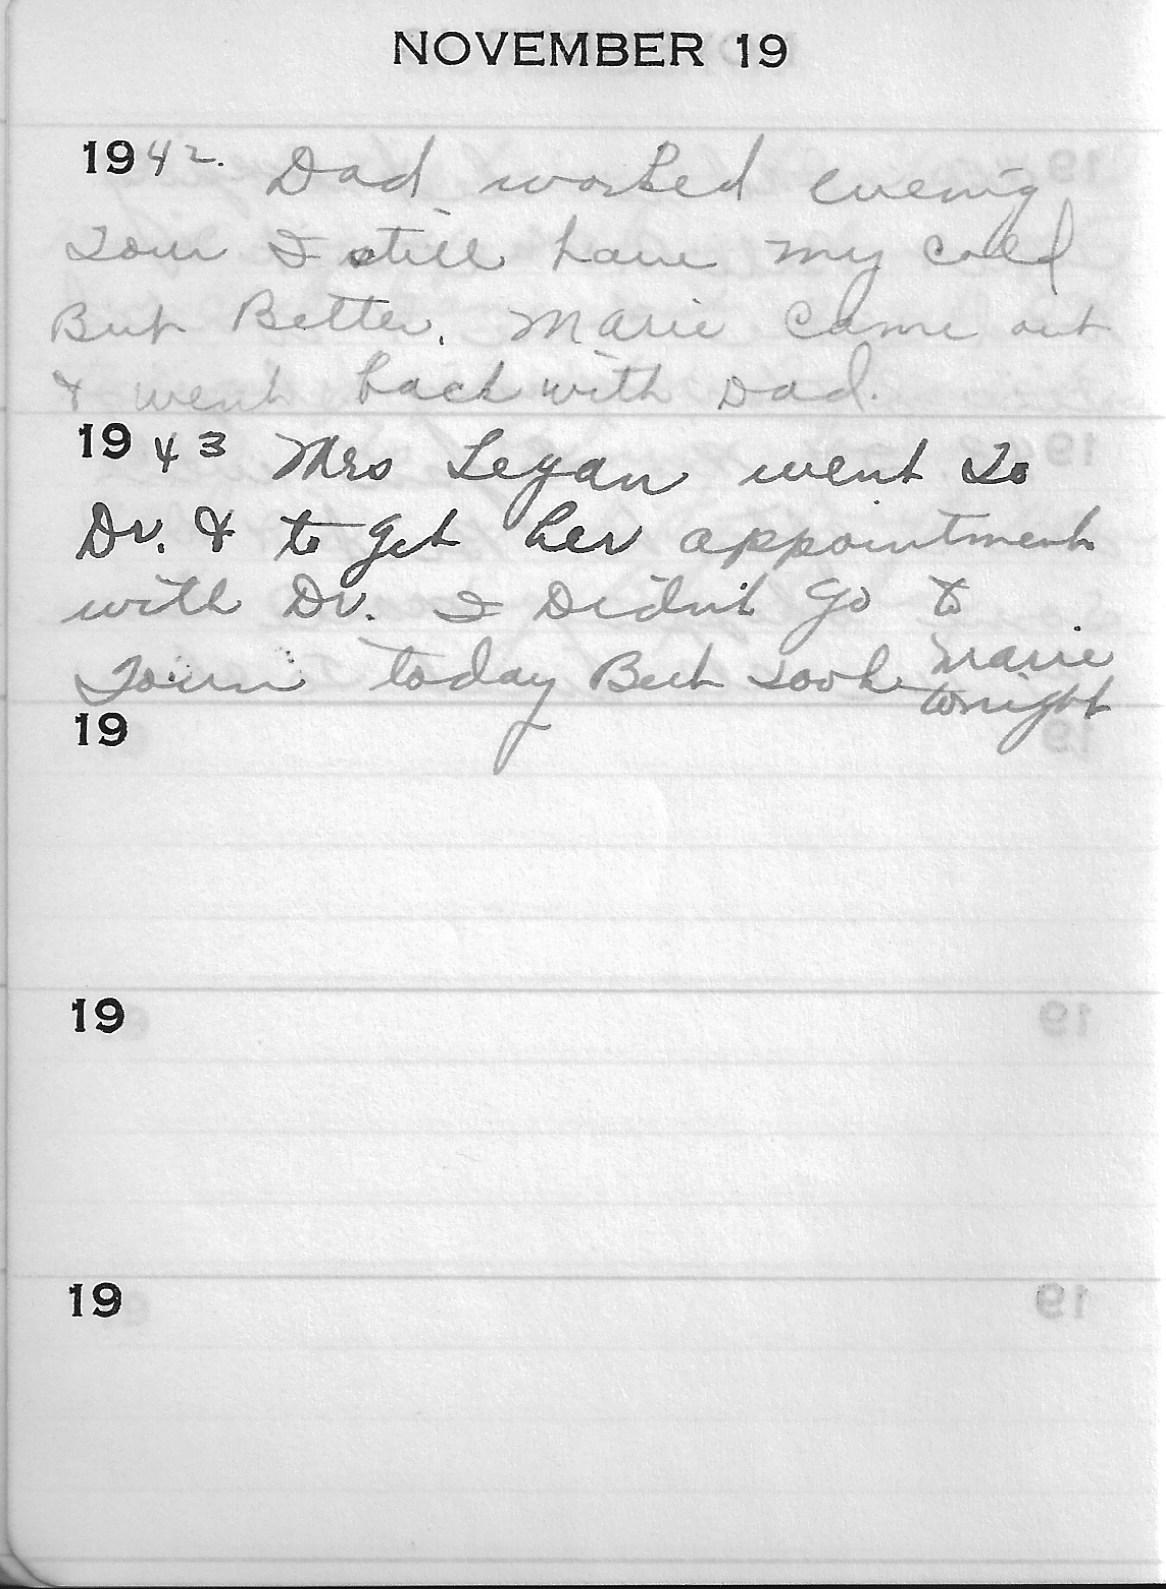 NOVEMBER 19
1942. Dad worked evening
Tour I still have my cold
But Better. Marie came out
& went back with Dad.
1943 Mrs Legan went To
Dr. & to get her appointment
with Dr. I Didn't go to
Town today But took Marie
tonight
19
19
19